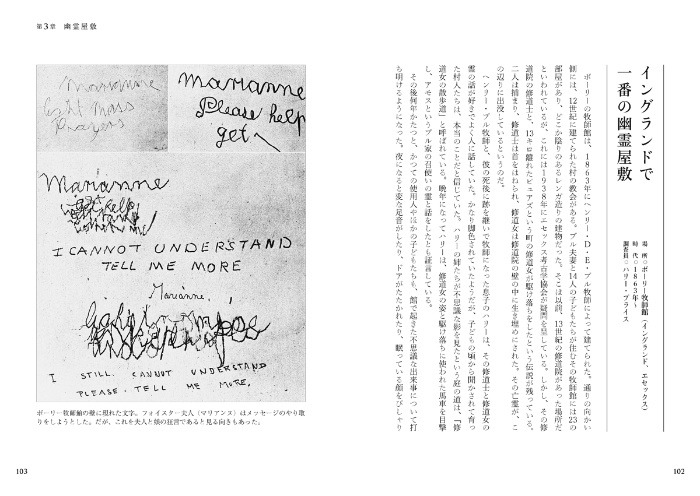 イングランドで
一番の幽霊屋敷
場 所◎ボーリー牧師館(イングランド、エセックス)
時 代◎1863年~
調査員◎ハリー・プライス
ボーリーの牧師館は、1863年にヘンリー・D・E・ブル牧師によって建てられた。通りの向かい
側には、12世紀に建てられた村の教会がある。ブル夫妻と14人の子どもたちが住むその牧師館には23の
部屋があり、どこか陰りのあるレンガ造りの建物だった。そこは以前、13世紀の修道院があった場所だ
といわれているが、これには1938年にエセックス考古学協会が疑問を呈している。しかし、その修
道院の修道士と、13キロ離れたビュアズという町の修道女が駆け落ちをしたという伝説が残っている。
二人は捕まり、修道士は首をはねられ、修道女は修道院の壁の中に生き埋めにされた。その亡霊が、こ
の辺りに出没しているというのだ。
ヘンリー・ブル牧師と、彼の死後に跡を継いで牧師になった息子のハリーは、その修道士と修道女の
霊の話が好きでよく人に話していた。かなり脚色されていたようだが、子どもの頃から聞かされて育っ
た村人たちは、本当のことだと信じていた。ハリーの姉たちが不思議な影を見たという庭の道は、「修
道女の散歩道」と呼ばれている。晩年になってハリーは、修道女の姿と駆け落ちに使われた馬車を目撃
し、アモスというブル家の召使いの霊と話をしたとも証言している。
その後何年かたつと、かつての使用人やほかの子どもたちも、館で起きた不思議な出来事について打
ち明けるようになった。夜になると変な足音がしたり、ドアがたたかれたり、眠っている顔をぴしゃり
102
第3章 幽霊屋敷
Marianne
light mass
Prayers
Marianne
Please help
get
Marianne
get help
I CANNOT UNDERSTAND
TELL ME MORE
Marianne,
I STILL CANNOT UNDERSTAND
PLEASE TELL ME MORE.
ボーリー牧師館の壁に現れた文字。フォイスター夫人(マリアンヌ)はメッセージのやり取
りをしようとした。だが、これを夫人と娘の狂言であると見る向きもあった。
103